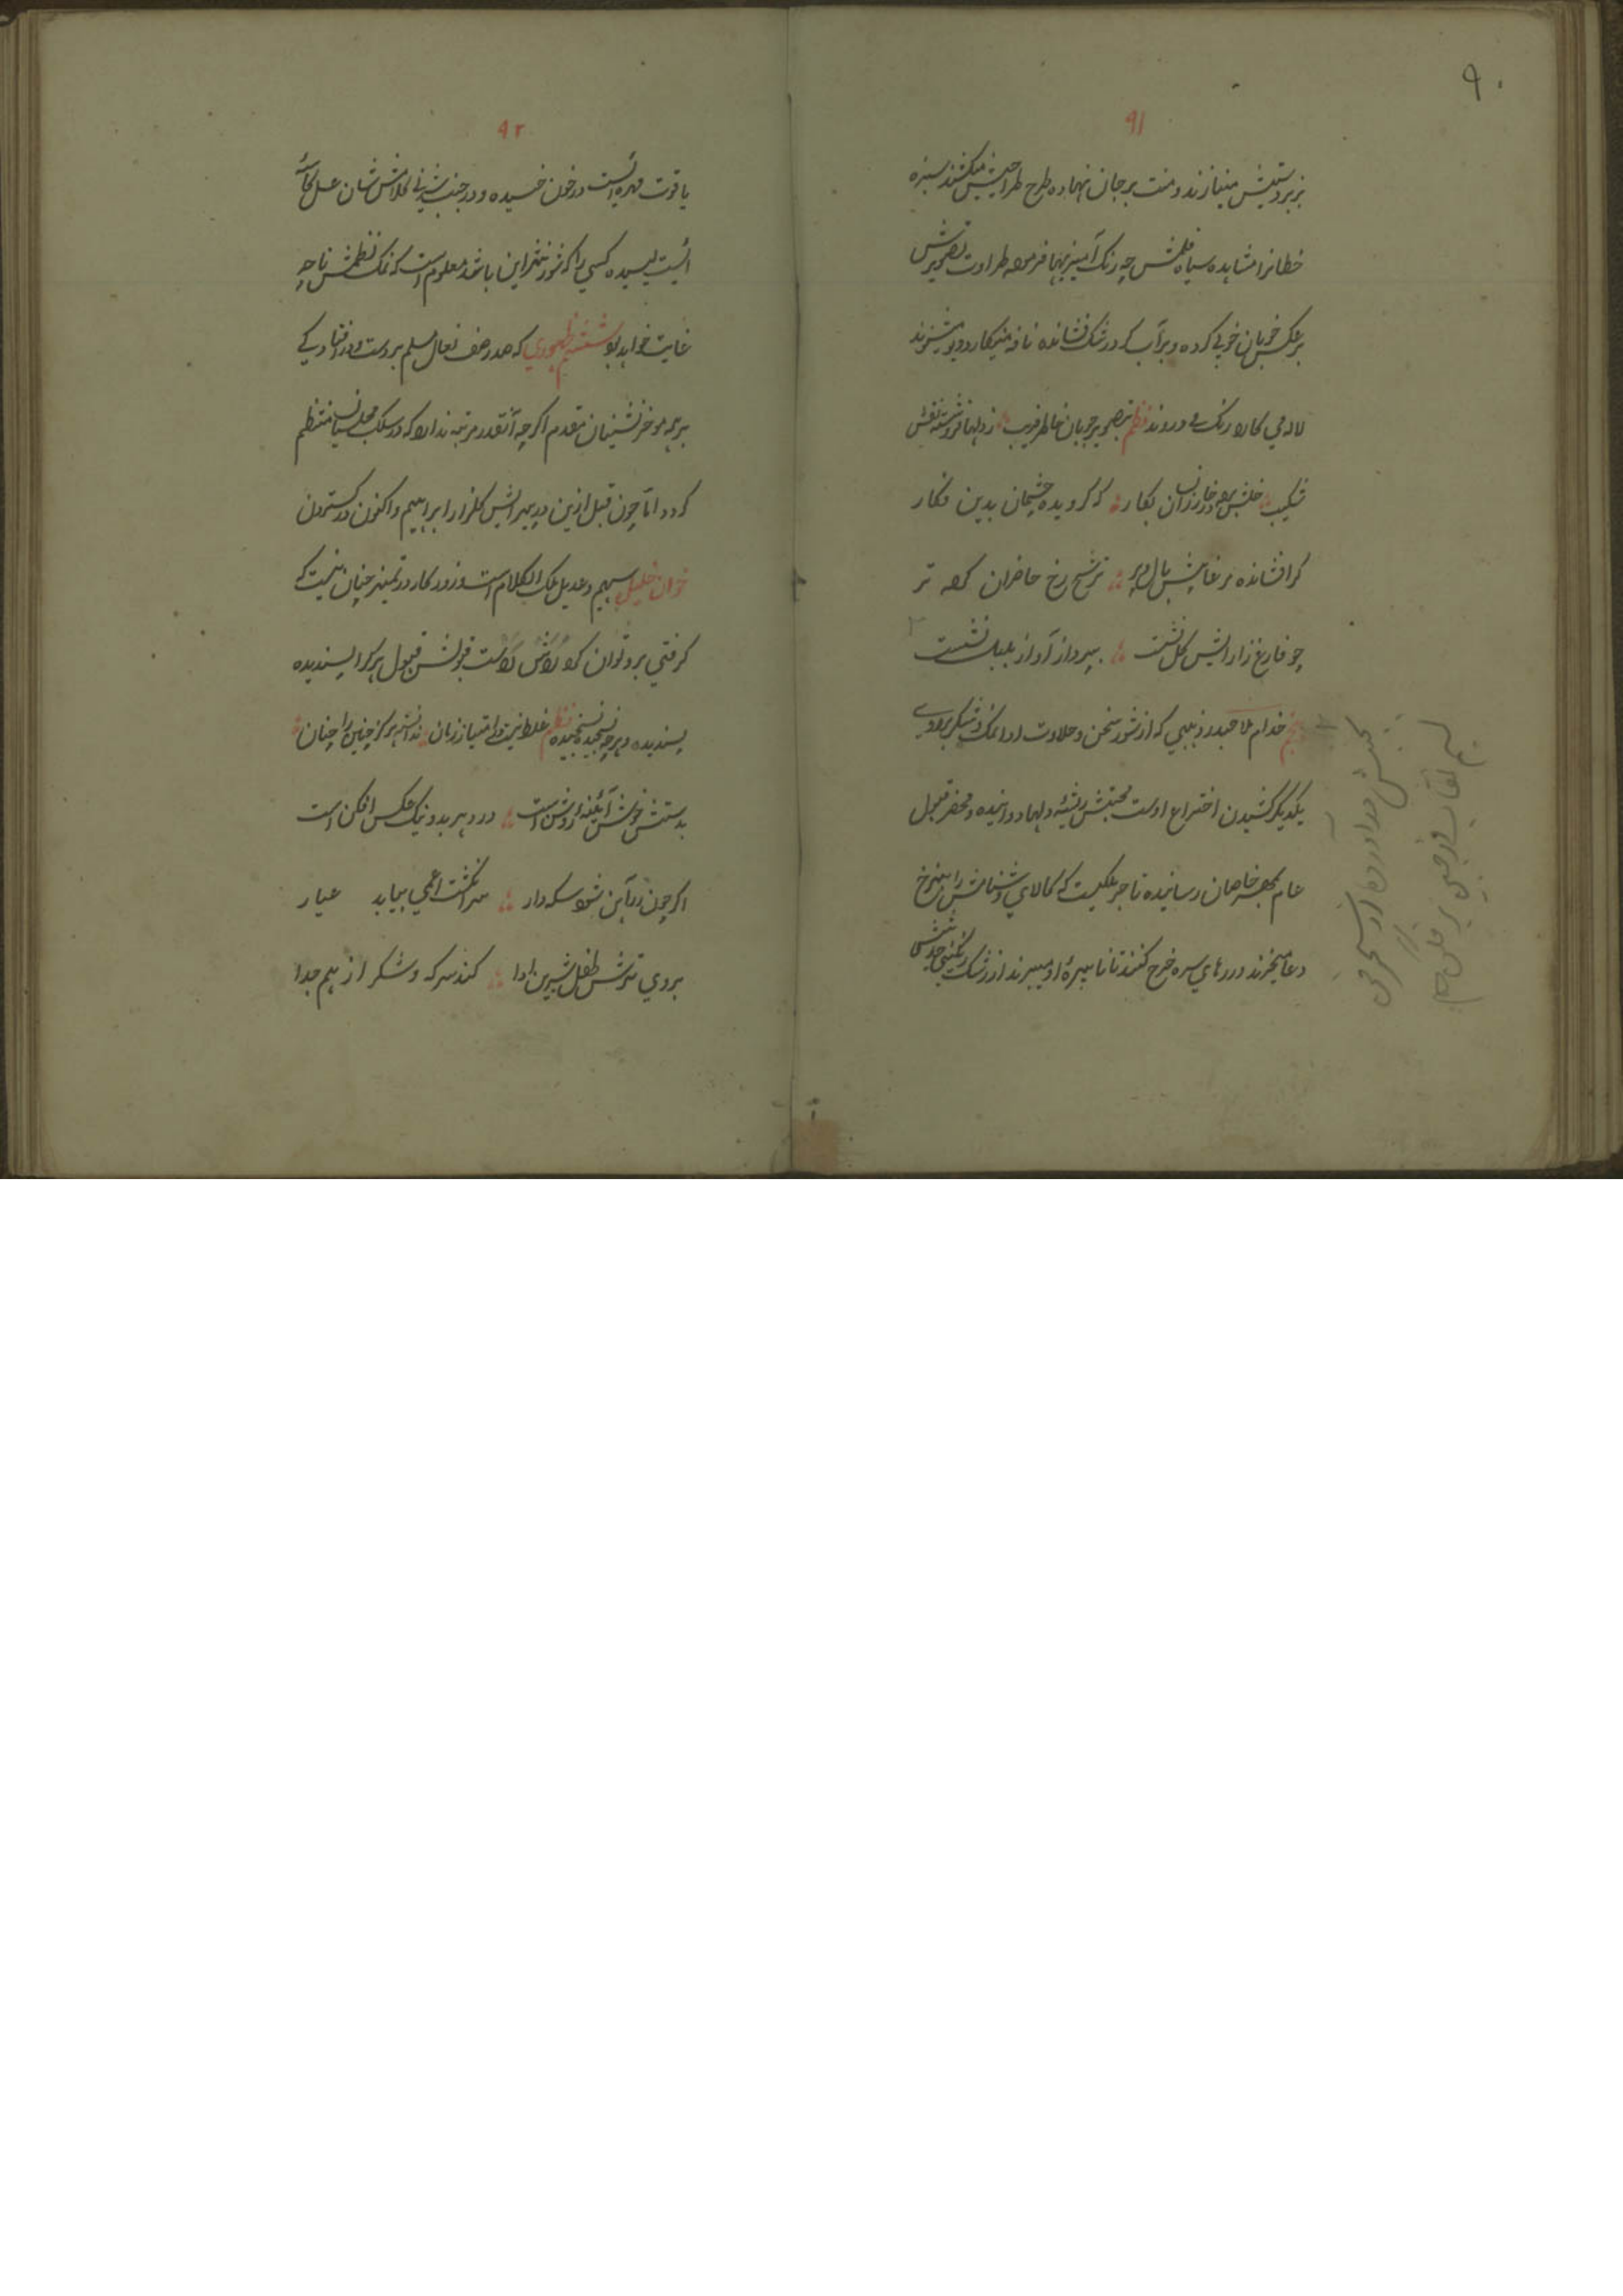 ۹۰
۹۱
زبردستیش مینازند و منت بر جان نهاده طرح طراحیش میکشند سبزه
خطانرا مشاهده سیاه قلمش چه رنگ آمیزیها فرموده طراوت تصویرش
بر عکس خوبان خوبی کرده و بر آب که در مشک فشانده نافه میکارد و بو میشنوند
لاله می کارد رنگ می دروند نظم بتصویر خوبان خاطر فریب ز دلها فروشسته نقش
شکیب خلش بوده خار زانسان بکار که گردیده چشمان بدین فکار
گر افشانده مرغابیش بال و پر ترشح رخ حاضران کرده تر
چو فارغ ز آرایش گل نشست بپرداز آواز بلبل نشست
خدام ملا حیدر ذهنی که از شور سخن و حلاوت ادا نمک و شکر بروی
یکدیگر کشیدن اختراع اوست محبتش ریشه در دلها دوانیده و محضر قبول
عام بمهر خاصان رسانیده تاجر ملکیست که کالای روشناسش را بنرخ
دعا میخرند و زرهای سره خرج کنند تا ناسره او میبرند از رشک رنگینی حدیثش
۹۲
یاقوت مهره ایست در خون خسیده و در جنب شیرینی کلامش شان عسل کاسه
ایست لیسیده کسی را که شور نثر این باشد معلوم است که نمک نظمش تا چه
غایت خواهد بود ششم ظهوری که صدر صف نعال مسلم بر دست و در افتادگی
بر همه موخر نشینان مقدم اگر چه آنقدر مرتبه ندارد که در سلک مجلسیان منتظم
گردد اما چون قبل ازین در پیرایش گلزار ابراهیم و اکنون در گستردن
خوان خلیل سهیم و عدیل ملک الکلام است و روزگار در تمیز چنان نیست که
گرفتی برو توان کرد روش راست قبولش قبول هر کرا پسندیده
پسندیده و هر چه نسنجیده نسنجیده نظم غلط نیست در امتیاز زمان نداند هرگز چنین را چنان
بدستش خوش آئینه روشن است درو هر بد و نیک عکس افکن است
اگر چون زر آهن شود سکه دار سر انگشت اعمی بیابد عیار
بروی ترش طفل شیرین ادا کند سرکه و شکر از هم جدا